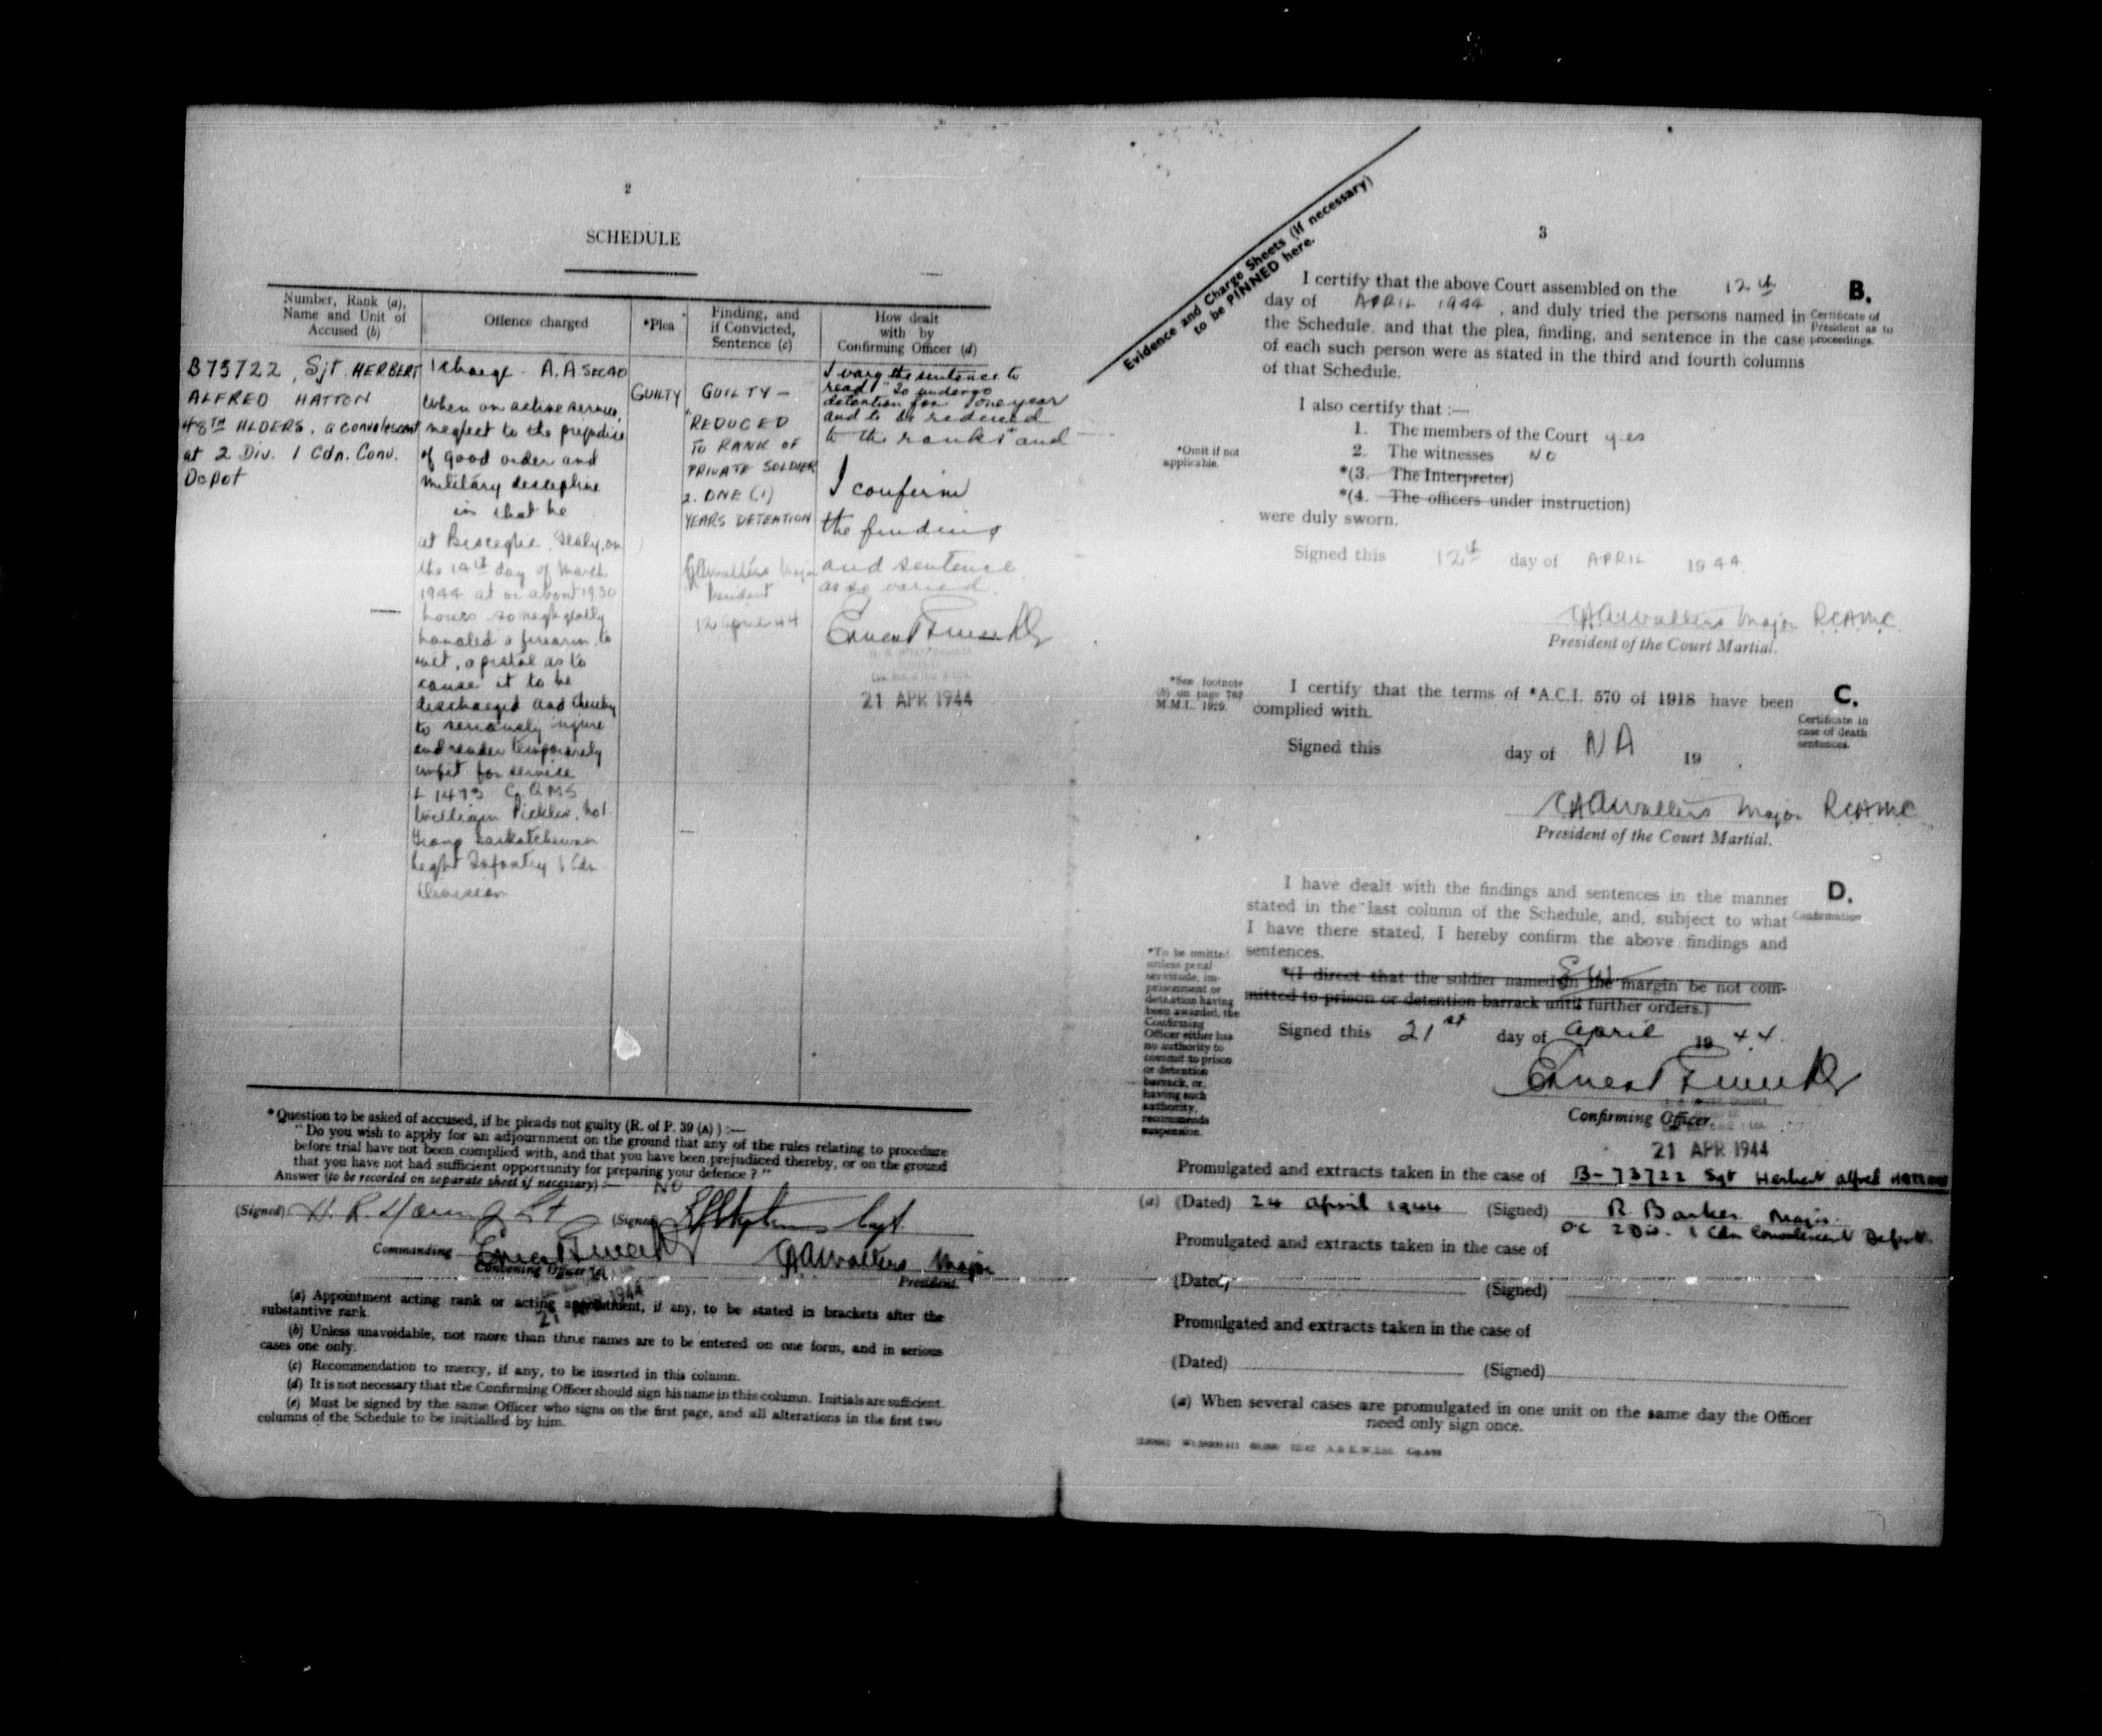 2
SCHEDULE
Number, Rank (a),
Name and Unit of
Accused (b)
Offence charged
*Plea
Finding, and
if Convicted,
Sentence (c)
How dealt
with by
Confirming Officer (d)
B73722, Sjt. HERBERT
ALFRED HATTON
48TH HLDERS. a convalescent
at 2 Div. 1 Cdn. Conv.
Depot
1 charge. A.A. Sec 40
When on active service,
neglect to the prejudice
of good order and
military discipline
in that he
at Bisceglie, Italy, on
the 14th day of March
1944 at or about 1930
hours so negligently
handled a firearm, to
wit, a pistol as to
cause it to be
discharged and thereby
to seriously injure
and render temporarily
unfit for service
L 1473 C.Q.M.S
William Pickles, No 1
Group Saskatchewan
Light Infantry 1 Cdn
Division
GUILTY
GUILTY —
"REDUCED
TO RANK OF
PRIVATE SOLDIER
2. ONE (1)
YEARS DETENTION
Major
President
12 April 44
I vary the sentence to
read "To undergo
detention for one year
and to be reduced
to the ranks" and
I confirm
the finding
and sentence
as so varied.
21 APR 1944
*Question to be asked of accused, if he pleads not guilty (R. of P. 39 (A) ) :—
"Do you wish to apply for an adjournment on the ground that any of the rules relating to procedure
before trial have not been complied with, and that you have been prejudiced thereby, or on the ground
that you have not had sufficient opportunity for preparing your defence ?"
Answer (to be recorded on separate sheet if necessary) :— NO
(Signed) Lt (Signed) Capt.
Commanding
Convening Officer
Major
President.
21 APR 1944
(a) Appointment acting rank or acting appointment, if any, to be stated in brackets after the
substantive rank.
(b) Unless unavoidable, not more than three names are to be entered on one form, and in serious
cases one only.
(c) Recommendation to mercy, if any, to be inserted in this column.
(d) It is not necessary that the Confirming Officer should sign his name in this column. Initials are sufficient.
(e) Must be signed by the same Officer who signs on the first page, and all alterations in the first two
columns of the Schedule to be initialled by him.
Evidence and Charge Sheets (if necessary)
to be PINNED here.
3
I certify that the above Court assembled on the 12th
day of APRIL 1944, and duly tried the persons named in
the Schedule, and that the plea, finding, and sentence in the case
of each such person were as stated in the third and fourth columns
of that Schedule.
B.
Certificate of
President as to
proceedings.
I also certify that :—
1. The members of the Court yes
2. The witnesses NO
*(3. The Interpreter)
*(4. The officers under instruction)
were duly sworn.
*Omit if not
applicable.
Signed this 12th day of APRIL 1944
Major RCAMC
President of the Court Martial.
*See footnote
(b) on page 762
M.M.L. 1929.
I certify that the terms of *A.C.I. 570 of 1918 have been
complied with.
C.
Certificate in
case of death
sentences.
Signed this day of NA 19
Major RCAMC
President of the Court Martial.
I have dealt with the findings and sentences in the manner
stated in the last column of the Schedule, and, subject to what
I have there stated, I hereby confirm the above findings and
sentences.
D.
Confirmation
*(I direct that the soldier named in the margin be not com-
mitted to prison or detention barrack until further orders.)
*To be omitted
unless penal
servitude, im-
prisonment or
detention having
been awarded, the
Confirming
Officer either has
no authority to
commit to prison
or detention
barrack, or,
having such
authority,
recommends
suspension.
Signed this 21st day of April 1944.
Confirming Officer.
21 APR 1944
Promulgated and extracts taken in the case of B-73722 Sgt Herbert Alfred Hatton
(a) (Dated) 24 April 1944 (Signed) R Barker Major.
OC 2 Div. 1 Cdn Convalescent Depot.
Promulgated and extracts taken in the case of
(Dated) (Signed)
Promulgated and extracts taken in the case of
(Dated) (Signed)
(a) When several cases are promulgated in one unit on the same day the Officer
need only sign once.